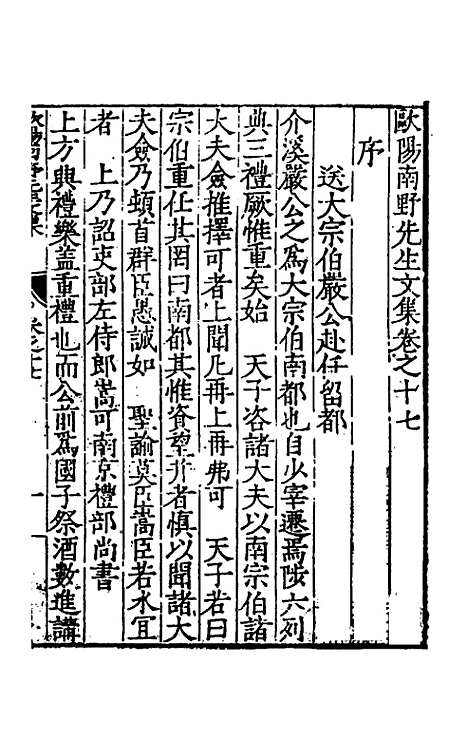 歐陽南野先生文集卷之十七
序
送大宗伯嚴公赴任留都
介溪嚴公之爲大宗伯南都也自少宰遷焉陟六列
典三禮厥惟重矣始 天子咨諸大夫以南宗伯諸
大夫僉推擇可者上聞凡再上再弗可 天子若曰
宗伯重任其罔曰南都其惟資望并者慎以聞諸大
夫僉乃頓首群臣愚誠如 聖諭莫臣嵩臣若水宜
者 上乃詔吏部左侍郎嵩可南京禮部尚書
上方興禮樂蓋重禮也而公前爲國子祭酒數進講